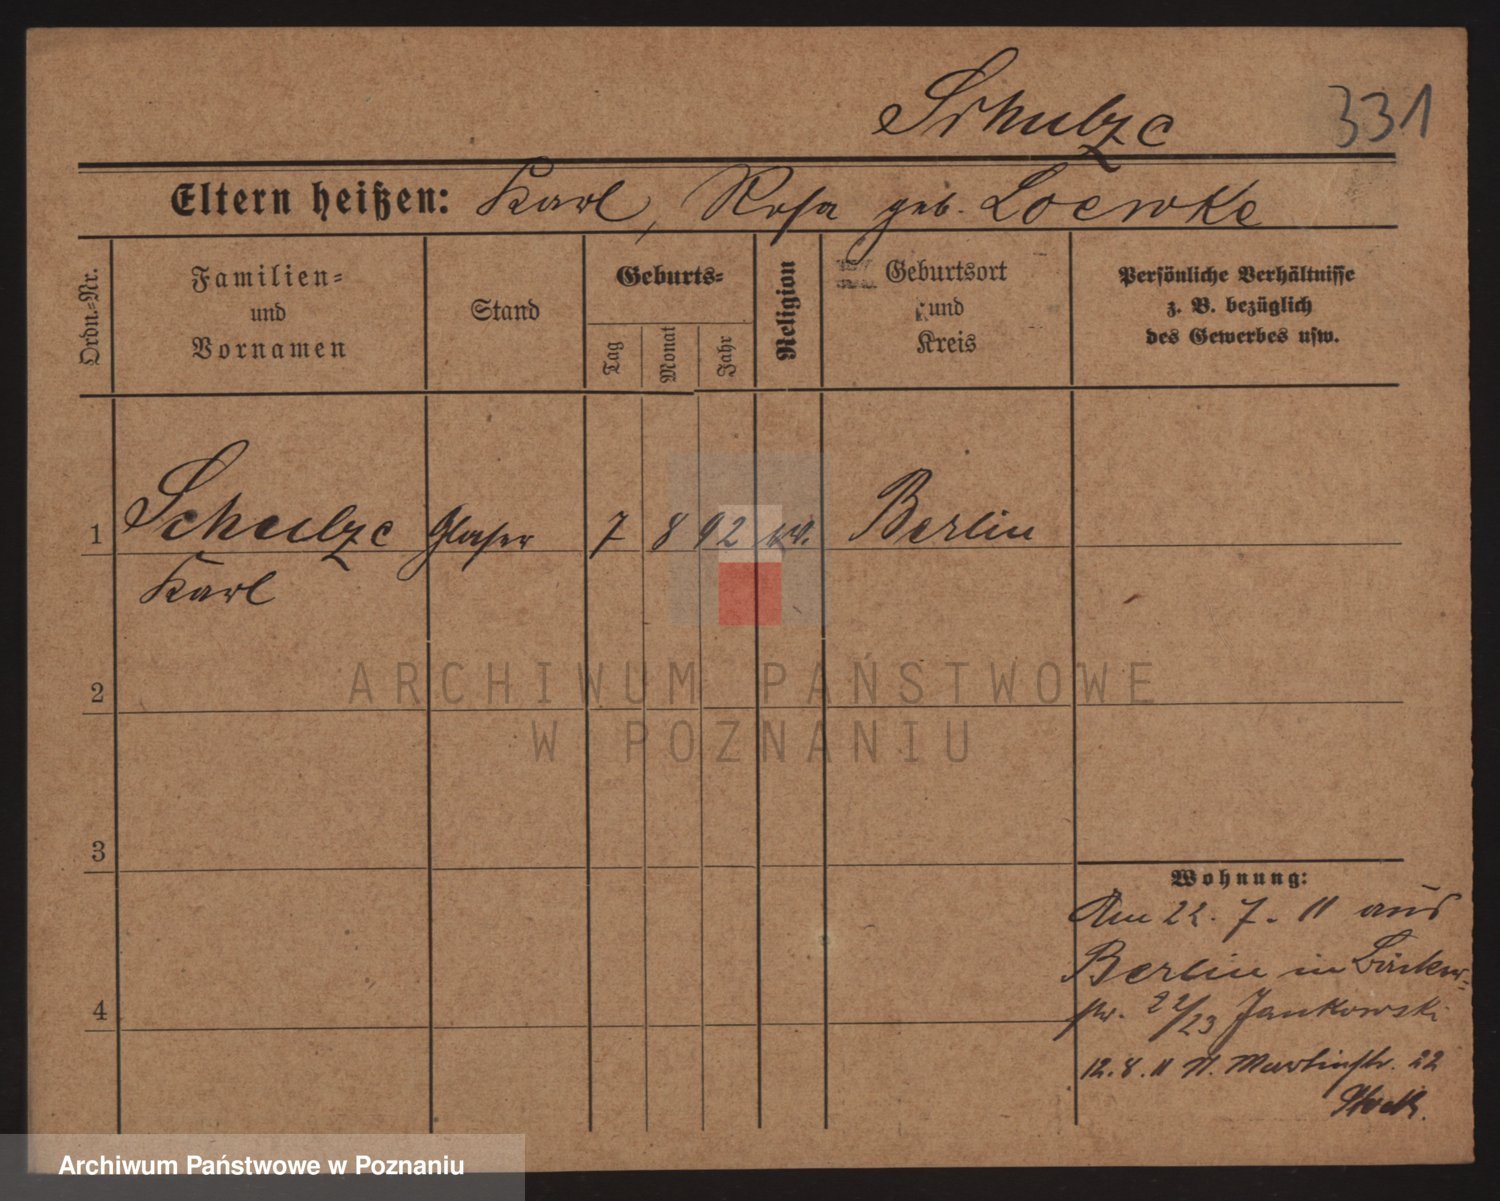 Schulze 331
Eltern heißen: Karl, Rosa geb. Loewke
Ordn.-Nr.
Familien-
und
Vornamen
Stand
Geburts-
Tag
Monat
Jahr
Religion
Geburtsort
und
Kreis
Persönliche Verhältnisse
z. B. bezüglich
des Gewerbes usw.
1 Schulze Glaser 7 8 92 ev. Berlin
Karl
2
3
4
Wohnung:
Am 22. 7. 11 aus
Berlin in Bäcker-
str. 22/23 Jankowski
12. 8. 11 N. Martinstr. 22
ARCHIWUM PAŃSTWOWE
W POZNANIU
Archiwum Państwowe w Poznaniu